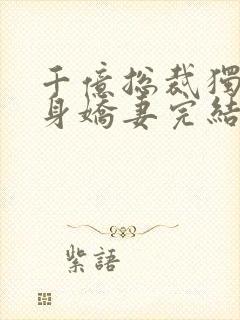 千億總裁獨
身嬌妻完結
紫語